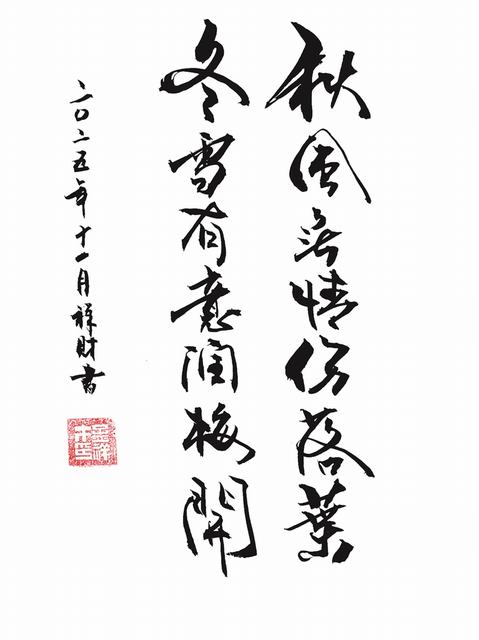 秋風無情傷落葉
冬雪有意潤梅開
二〇二五年十一月祥財書